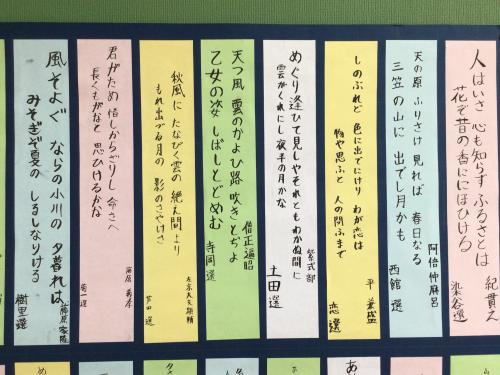 人はいさ 心も知らず ふるさとは
花ぞ昔の香ににほひける
紀貫之
染谷選
天の原 ふりさけ見れば 春日なる
三笠の山に 出でし月かも
阿倍仲麻呂
西館 選
しのぶれど 色に出でにけり わが恋は
物や思ふと 人の問ふまで
平 兼盛
恋 選
めぐり逢ひて見しやそれともわかぬ間に
雲がくれにし夜半の月かな
紫式部
土田 選
天つ風 雲のかよひ路 吹きとぢよ
乙女の姿 しばしとどめむ
僧正遍昭
寺岡 選
秋風に たなびく雲の 絶え間より
もれ出づる月の 影のさやけさ
左京大夫顕輔
芦田 選
君がため 惜しからざりし 命さへ
長くもがなと 思ひけるかな
藤原 義孝
菊一選
風そよぐ ならの小川の 夕暮れは
みそぎぞ夏の しるしなりける
藤原家隆
樹里選